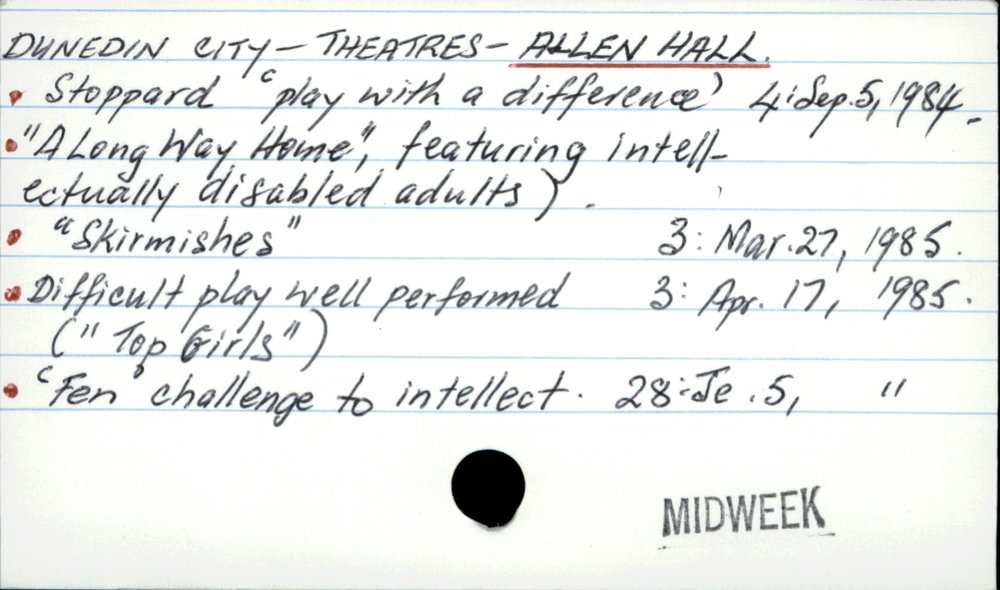 DUNEDIN CITY – THEATRES – ALLEN HALL.
• Stoppard 'play with a difference' 4: Sep. 5, 1984.
• "A Long Way Home", featuring intell-
ectually disabled adults).
• "Skirmishes" 3: Mar. 27, 1985.
• Difficult play well performed 3: Apr. 17, 1985.
("Top Girls")
• 'Fen' challenge to intellect. 28: Je. 5, "
MIDWEEK